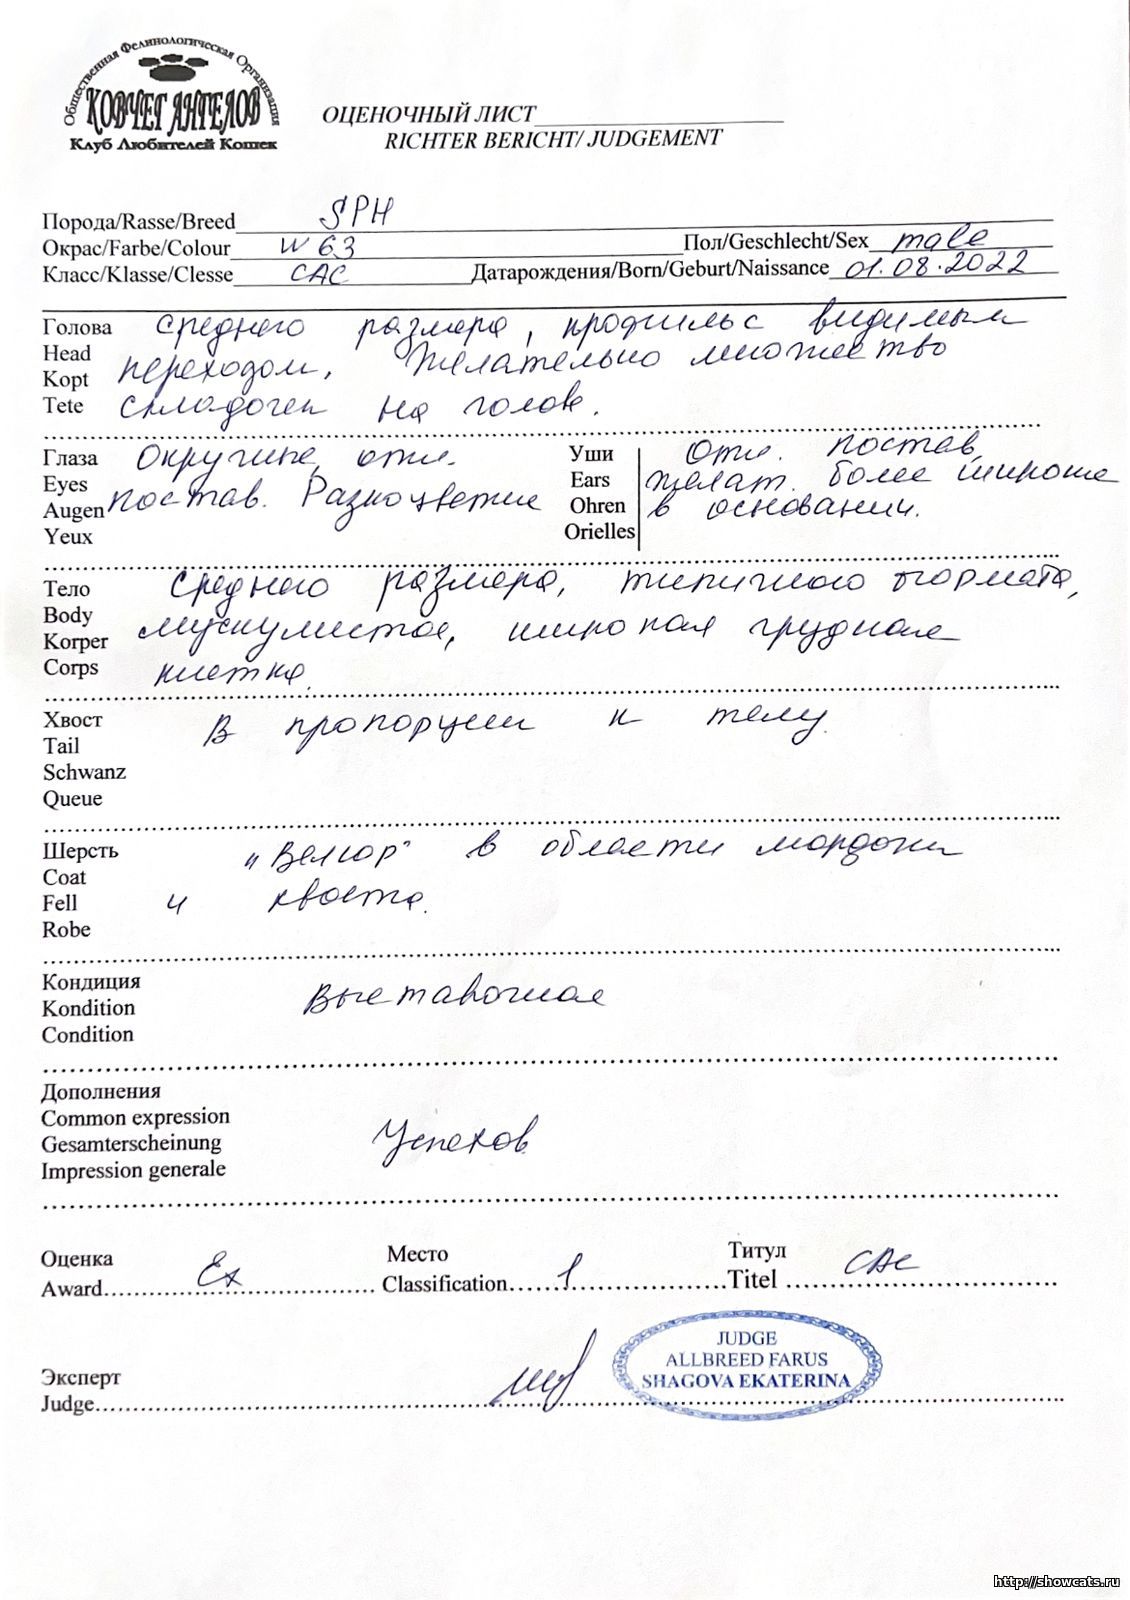 Общественная Фелинологическая Организация
КОВЧЕГ АНГЕЛОВ
Клуб Любителей Кошек
ОЦЕНОЧНЫЙ ЛИСТ
RICHTER BERICHT/ JUDGEMENT
Порода/Rasse/Breed SPH
Окрас/Farbe/Colour W 63 Пол/Geschlecht/Sex male
Класс/Klasse/Clesse CAC Датарождения/Born/Geburt/Naissance 01.08.2022
Голова среднего размера, профиль с видимым
Head
Kopt переходом. Желательно множество
Tete складочек на голове.
Глаза Округлые, отл. Уши Отл. постав,
Eyes Ears желат. более широкие
Augen постав. Разноцветные Ohren в основании.
Yeux Orielles
Тело Среднего размера, типичного формата,
Body
Korper мускулистое, широкая грудная
Corps клетка.
Хвост В пропорции к телу.
Tail
Schwanz
Queue
Шерсть "Велюр" в области мордочки
Coat
Fell и хвоста.
Robe
Кондиция
Kondition Выставочная
Condition
Дополнения
Common expression
Gesamterscheinung Успехов
Impression generale
Оценка Место Титул
Award Ex Classification 1 Titel CAC
JUDGE
ALLBREED FARUS
Эксперт SHAGOVA EKATERINA
Judge
http://showcats.ru